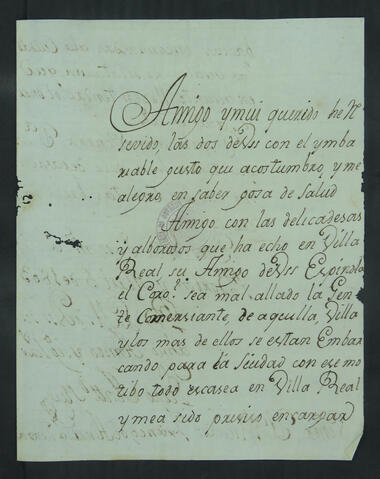 Amigo y mui querido he R
sevido, las dos de Vss con el ymba
riable gusto que acostumbro, y me
alegro, en saber gosa de Salud
Amigo con las delicadesas
y alborotos que ha echo en Villa
Real su Amigo de Vss Espindola
el Coro.l sea mal allado la Gen
te Comersiante, de aquilla, Villa
y los mas de ellos se estan Embar
cando para la Siudad con ese mo
tibo todo escasea en Villa Real
y mea sido presiso ensarpar